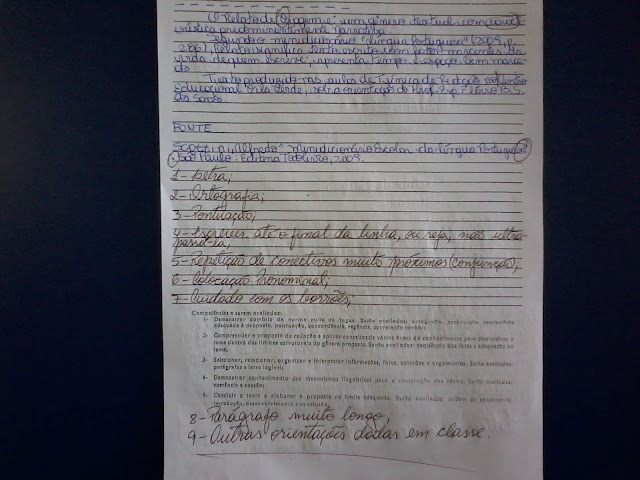 O Relato de Viagem é um gênero textual com carac
terística predominantemente narrativa.
Segundo o minidicionário "língua Portuguesa" (2009, p.
286), Relato significa texto escrito com fatos marcantes da
vida de quem escreve, apresenta tempo e espaço bem marca-
do.
Texto produzido nas aulas de Técnica de Redação no Centro
Educacional Vila Verde, sob a orientação do Prof. Esp. Flávio
dos Santos.
FONTE
SCOTTINI, Alfredo" Minidicionário Escolar da língua Portuguesa"
São Paulo: Editora Todolivro, 2009.
1- Letra;
2- Ortografia;
3- Pontuação;
4- Escrever até o final da linha, ou seja, não ultra-
passá-la;
5- Repetição de conectivos muito próximos (conjunção);
6- Colocação Pronominal;
7- Cuidado com os borrões;
Competências a serem avaliadas:
1- Demonstrar domínio da norma culta da língua. Serão avaliados: ortografia, acentuação, vocabulário
adequado à proposta, pontuação, concordância, regência, conjugação verbal;
2- Compreender a proposta da redação e aplicar conceitos de várias áreas do conhecimento para desenvolver o
tema dentro dos limites estruturais do gênero proposto. Serão avaliados: sequência dos fatos e adequação ao
tema;
3- Selecionar, relacionar, organizar e interpretar informações, fatos, opiniões e argumentos. Serão avaliados:
parágrafos e letra legível;
4- Demonstrar conhecimento dos mecanismos linguísticos para a construção das ideias. Serão avaliados:
coerência e coesão;
5- Concluir o texto e elaborar a proposta no limite adequado. Serão avaliados: ordem do pensamento,
introdução, desenvolvimento e conclusão.
8- Parágrafo muito longo;
9- Outras orientações dadas em classe.